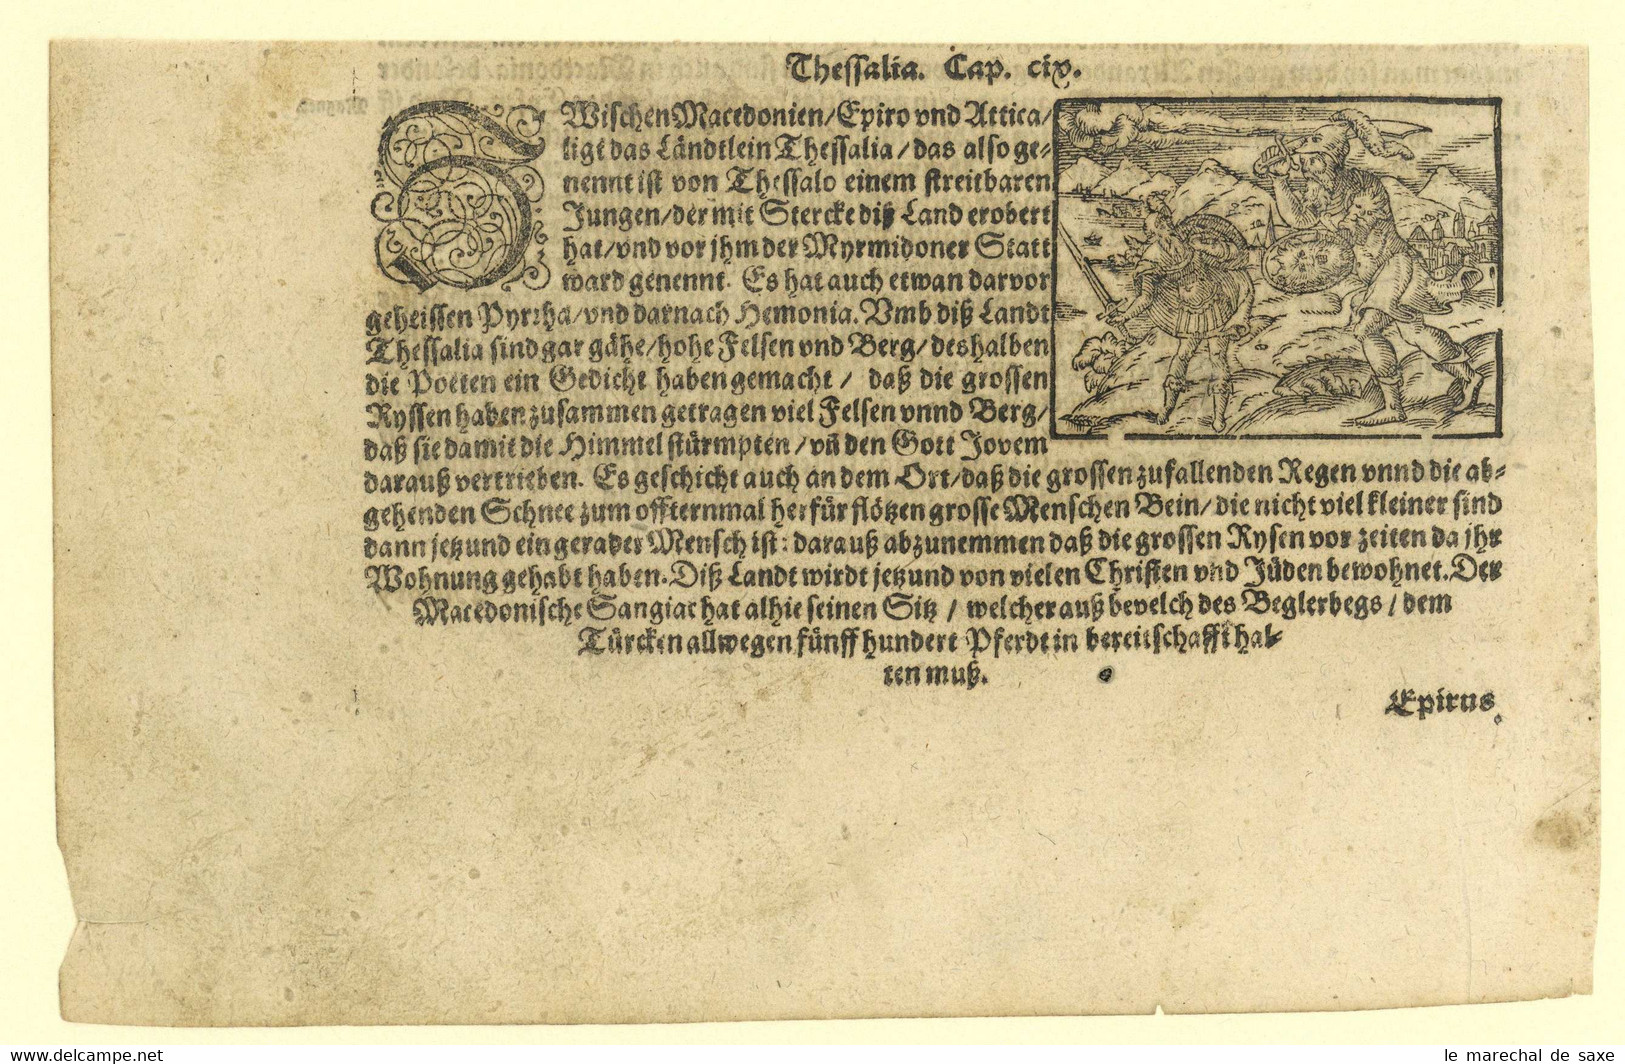 Thessalia. Cap. cix.
ZWischen Macedonien/Epiro vnd Attica/
ligt das Ländtlein Thessalia/das also ge-
nennt ist von Thessalo einem streitbaren
Jungen/der mit Stercke diß Land erobert
hat/vnd vor jhm der Myrmidoner Statt
ward genennt. Es hat auch etwan darvor
geheissen Pyrrha/vnd darnach Hemonia. Vmb diß Landt
Thessalia sind gar gähe/hohe Felsen vnd Berg/deshalben
die Poeten ein Gedicht haben gemacht/ daß die grossen
Ryssen haben zusammen getragen viel Felsen vnnd Berg/
daß sie damit die Himmel stürmpten/vñ den Gott Jovem
darauß vertrieben. Es geschicht auch an dem Ort/daß die grossen zufallenden Regen vnnd die ab-
gehenden Schnee zum offternmal herfür flötzen grosse Menschen Bein/die nicht viel kleiner sind
dann jetzund ein gerader Mensch ist: darauß abzunemmen daß die grossen Rysen vor zeiten da jhr
Wohnung gehabt haben. Diß Landt wirdt jetzund von vielen Christen vnd Jüden bewohnet. Der
Macedonische Sangiac hat alhie seinen Sitz/ welcher auß bevelch des Beglerbegs/dem
Türcken allwegen fünff hundert Pferdt in bereitschafft hal-
ten muß.
Epirus
le marechal de saxe
www.delcampe.net